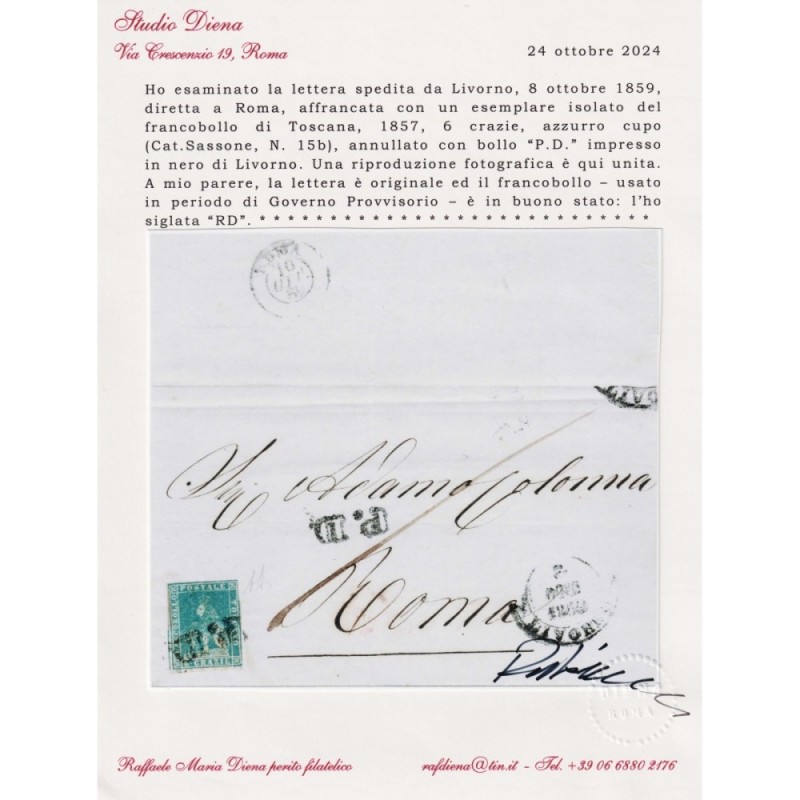 Studio Diena
Via Crescenzio 19, Roma
24 ottobre 2024
Ho esaminato la lettera spedita da Livorno, 8 ottobre 1859,
diretta a Roma, affrancata con un esemplare isolato del
francobollo di Toscana, 1857, 6 crazie, azzurro cupo
(Cat.Sassone, N. 15b), annullato con bollo “P.D.” impresso
in nero di Livorno. Una riproduzione fotografica è qui unita.
A mio parere, la lettera è originale ed il francobollo – usato
in periodo di Governo Provvisorio – è in buono stato: l’ho
siglata “RD”. * * * * * * * * * * * * * * * * * * * * * * * * * * * *
ROMA
10
Adamo Colonna
P.D.
Roma
LIVORNO
DIENA
ROMA
Raffaele Maria Diena perito filatelico
rafdiena@tin.it - Tel. +39 06 6880 2176